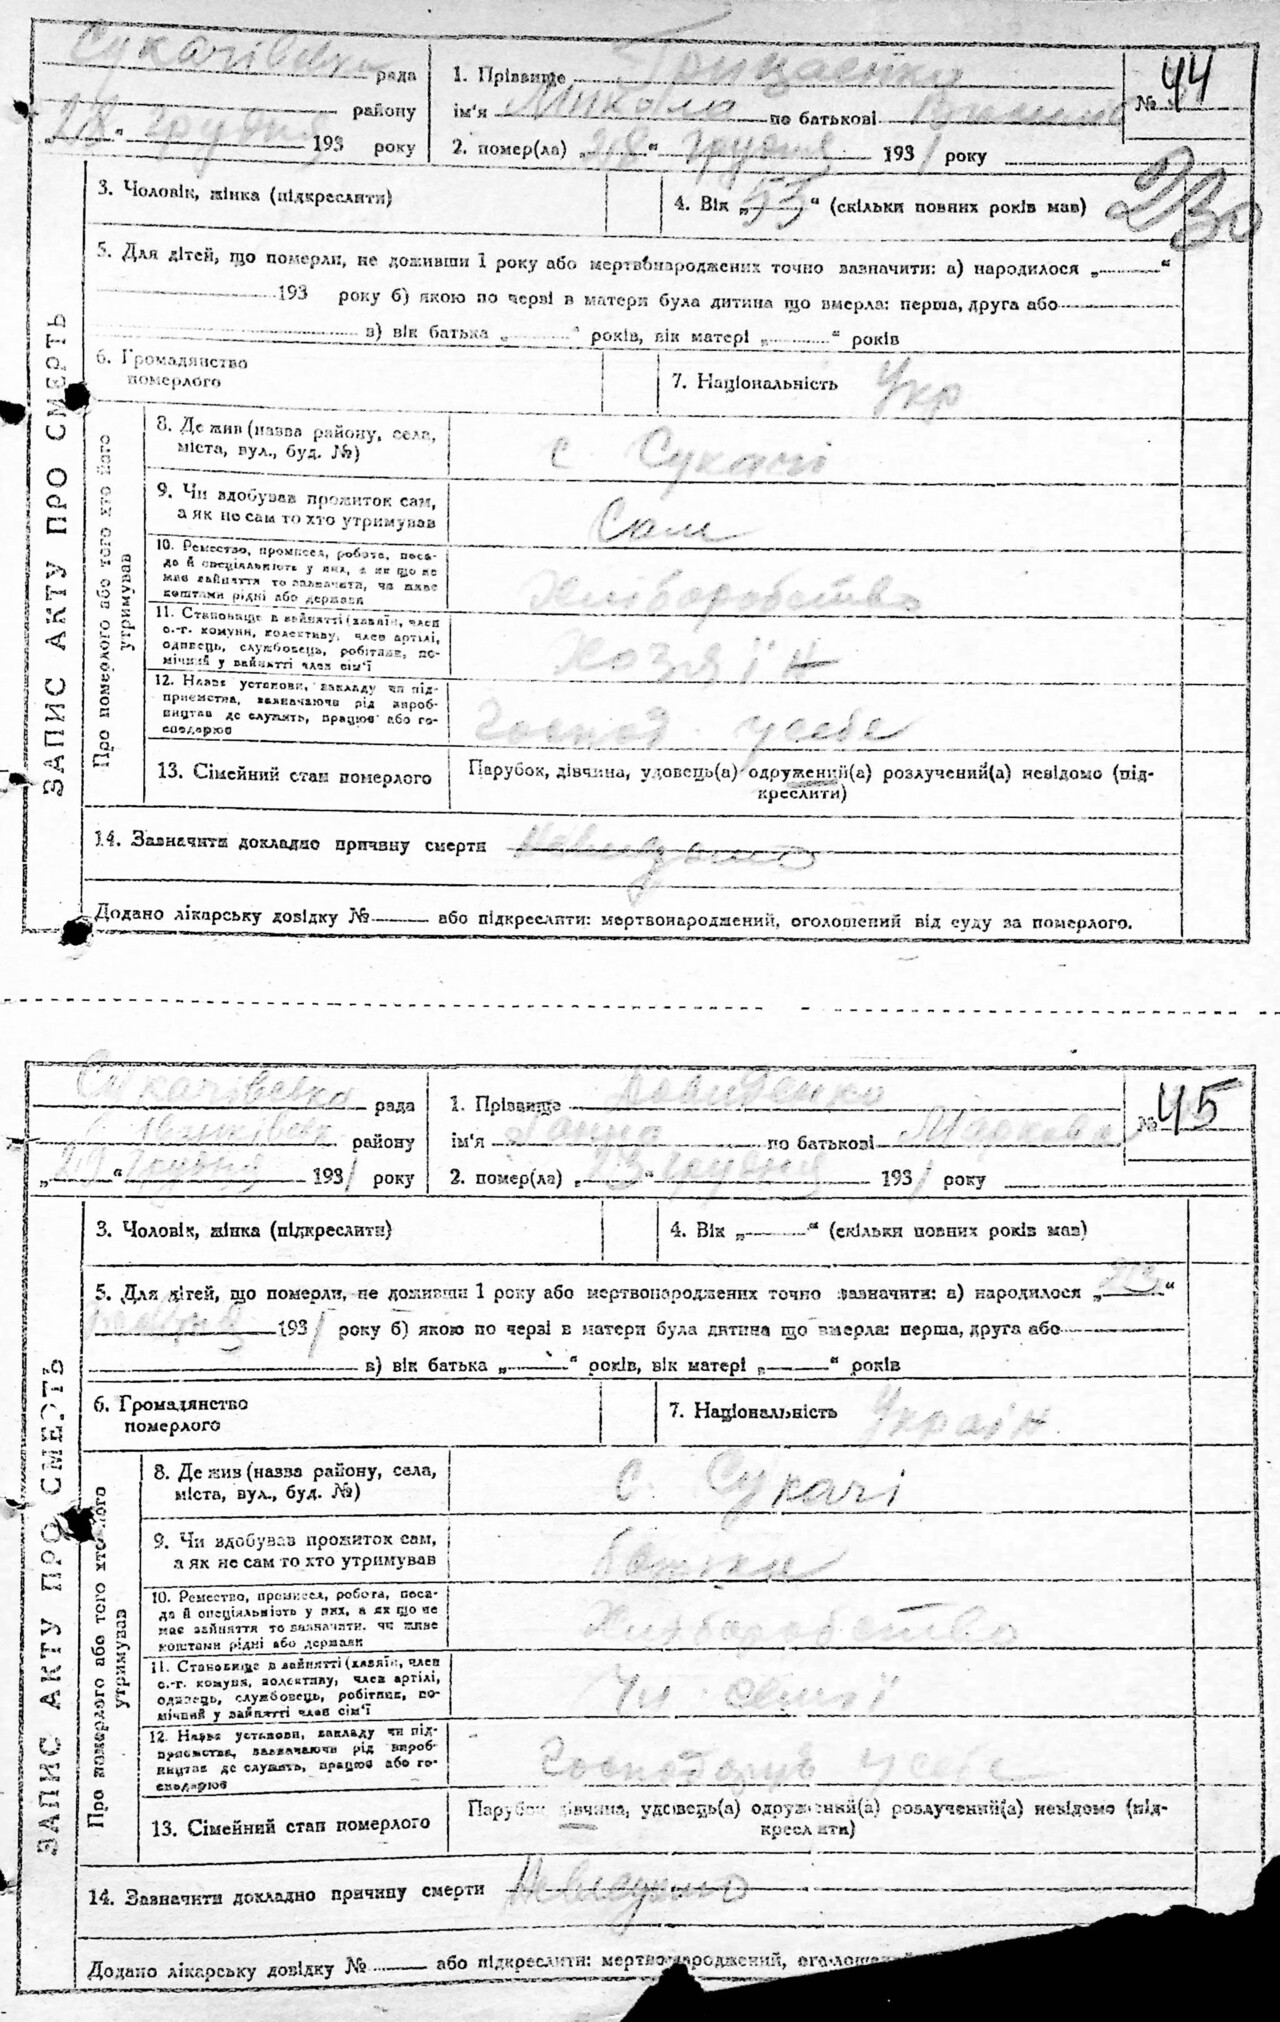 Сукачівська рада
району
"28" Грудня 193 року
1. Прізвище Грищенко
ім'я Микола по батькові
2. помер(ла) „28“ Грудня 1931 року
№ 44
230
ЗАПИС АКТУ ПРО СМЕРТЬ
3. Чоловік, жінка (підкреслити)
4. Вік „53“ (скільки повних років мав)
5. Для дітей, що померли, не доживши 1 року або мертвонароджених точно зазначити: а) народилося „ “
193 року б) якою по черзі в матери була дитина що вмерла: перша, друга або
в) вік батька „ “ років, вік матері „ “ років
6. Громадянство
померлого
7. Національність Укр
Про померлого або того хто його
утримував
8. Де жив (назва району, села,
міста, вул., буд. №)
с Сукачі
9. Чи здобував прожиток сам,
а як не сам то хто утримував
Сам
10. Ремество, промисел, робота, поса-
да й спеціяльність у них, а як що не
має зайняття то зазначити, чи живе
коштами рідні або держави
Хліборобство
11. Становище в зайнятті (хазяїн, член
с.-г. комуни, колективу, член артілі,
одинець, службовець, робітник, по-
мічний у зайнятті член сім'ї
Хозяїн
12. Назва установи, закладу чи під-
приємства, зазначаючи рід вироб-
ництва де служить, працює або го-
сподарює
Господ. у себе
13. Сімейний стан померлого
Парубок, дівчина, удовець(а) одружений(а) розлучений(а) невідомо (під-
креслити)
14. Зазначити докладно причину смерти Невидомо
Додано лікарську довідку № або підкреслити: мертвонароджений, оголошений від суду за померлого.
Сукачівська рада
Іванківськ району
„29“ Грудня 1931 року
1. Прізвище Давиденко
ім'я Ганна по батькові Маркова
2. помер(ла) „23“ Грудня 1931 року
№ 45
ЗАПИС АКТУ ПРО СМЕРТЬ
3. Чоловік, жінка (підкреслити)
4. Вік „ “ (скільки повних років мав)
5. Для дітей, що померли, не доживши 1 року або мертвонароджених точно зазначити: а) народилося „23“
1931 року б) якою по черзі в матери була дитина що вмерла: перша, друга або
в) вік батька „ “ років, вік матері „ “ років
6. Громадянство
померлого
7. Національність Україн
Про померлого або того хто його
утримував
8. Де жив (назва району, села,
міста, вул., буд. №)
с. Сукачі
9. Чи здобував прожиток сам,
а як не сам то хто утримував
10. Ремество, промисел, робота, поса-
да й спеціяльність у них, а як що не
має зайняття то зазначити, чи живе
коштами рідні або держави
Хліборобство
11. Становище в зайнятті (хазяїн, член
с.-г. комуни, колективу, член артілі,
одинець, службовець, робітник, по-
мічний у зайнятті член сім'ї
Чл. семї
12. Назва установи, закладу чи під-
приємства, зазначаючи рід вироб-
ництва де служить, працює або го-
сподарює
Господарує у себе
13. Сімейний стан померлого
Парубок, дівчина, удовець(а) одружений(а) розлучений(а) невідомо (під-
креслити)
14. Зазначити докладно причину смерти Невидомо
Додано лікарську довідку № або підкреслити: мертвонароджений,